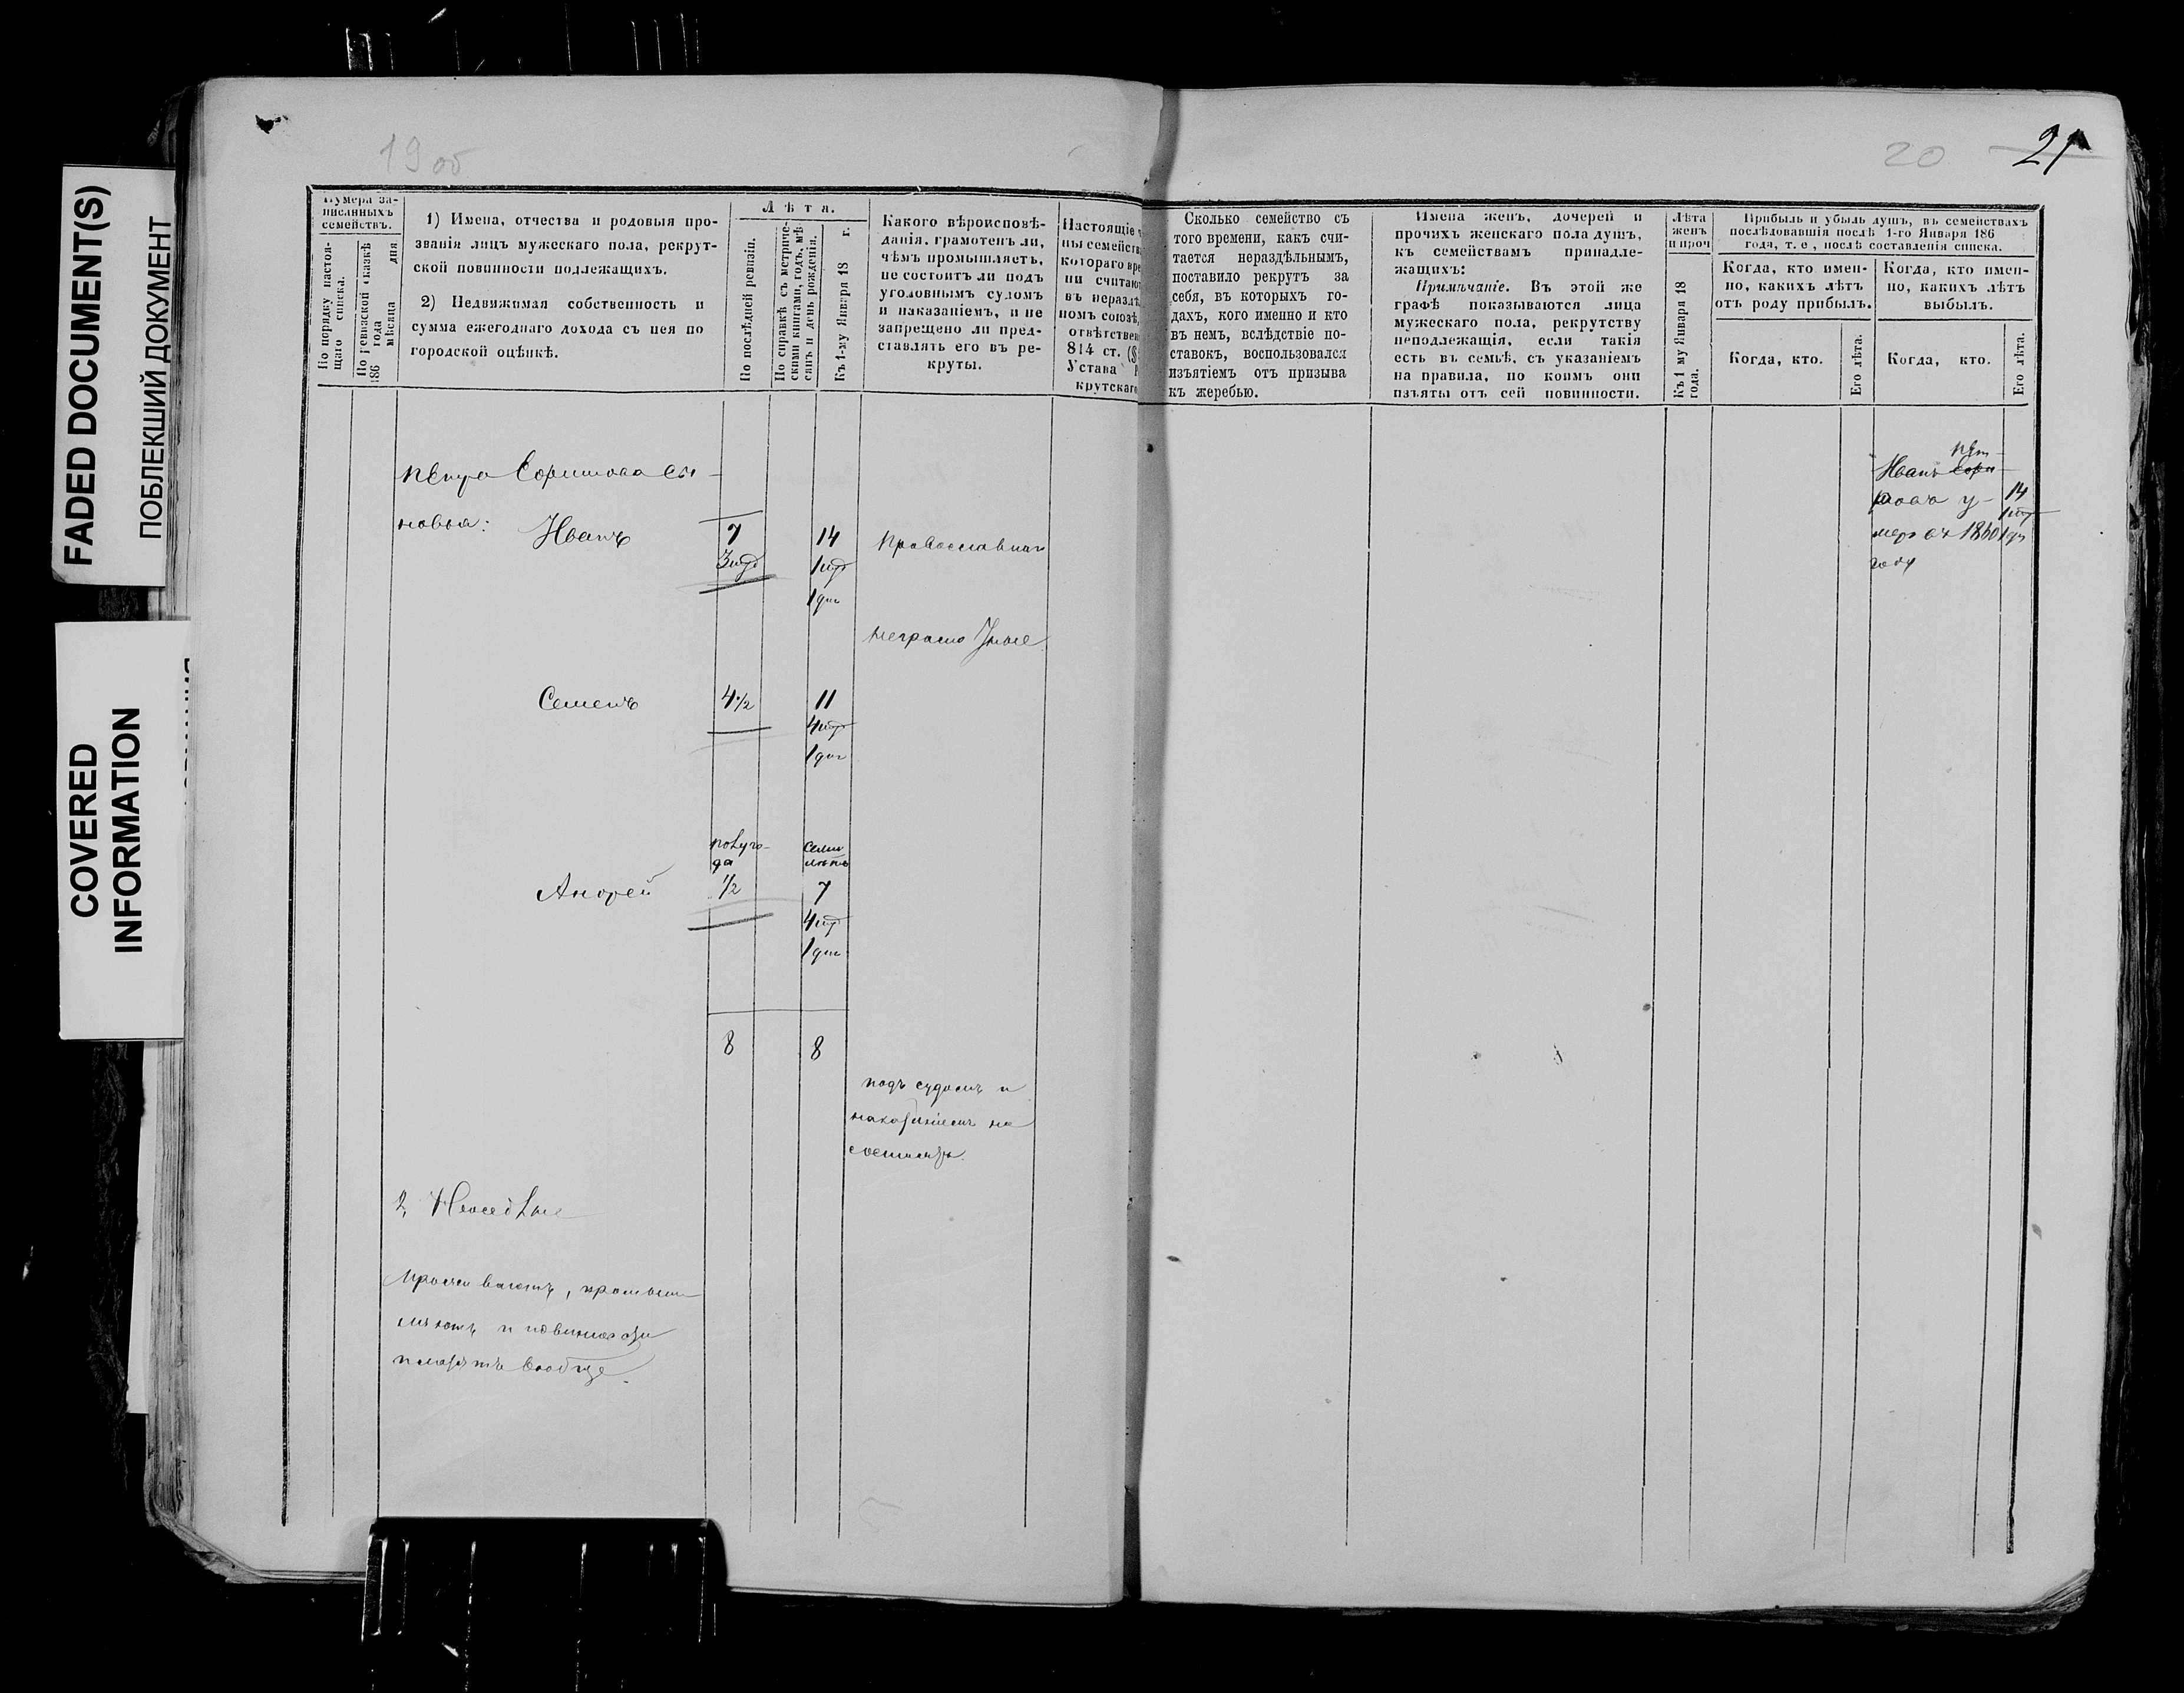 FADED DOCUMENT(S)
ПОБЛЕКШИЙ ДОКУМЕНТ
COVERED
INFORMATION
19 об
20 21
Нумера за-
писанныхъ
семействъ.
По порядку настоя-
щаго списка.
По ревизской сказкѣ
186 года
мѣсяца дня
1) Имена, отчества и родовыя про-
званія лицъ мужескаго пола, рекрут-
ской повинности подлежащихъ.
2) Недвижимая собственность и
сумма ежегоднаго дохода съ нея по
городской оцѣнкѣ.
Лѣта.
По послѣдней ревизіи.
По справкѣ съ метриче-
скими книгами, годъ, мѣ-
сяцъ и день рожденія.
Къ 1-му Января 18 г.
Какого вѣроисповѣ-
данія, грамотенъ ли,
чѣмъ промышляетъ,
не состоитъ ли подъ
уголовнымъ судомъ
и наказаніемъ, и не
запрещено ли пред-
ставлять его въ ре-
круты.
Настоящіе ч
ны семейств
котораго вре
ни считаю
въ нераздѣ
номъ союзѣ,
отвѣтствен
814 ст. (§
Устава Р
крутскаго
Сколько семейство съ
того времени, какъ счи-
тается нераздѣльнымъ,
поставило рекрутъ за
себя, въ которыхъ го-
дахъ, кого именно и кто
въ немъ, вслѣдствіе по-
ставокъ, воспользовался
изъятіемъ отъ призыва
къ жеребью.
Имена женъ, дочерей и
прочихъ женскаго пола душъ,
къ семействамъ принадле-
жащихъ:
Примѣчаніе. Въ этой же
графѣ показываются лица
мужескаго пола, рекрутству
неподлежащія, если такія
есть въ семьѣ, съ указаніемъ
на правила, по коимъ они
изъяты отъ сей повинности.
Лѣта
женъ
и проч
Къ 1 му Января 18
года.
Прибыль и убыль душъ, въ семействахъ
послѣдовавшія послѣ 1-го Января 186
года, т. е, послѣ составленія списка.
Когда, кто имен-
но, какихъ лѣтъ
отъ роду прибылъ.
Когда, кто имен-
но, какихъ лѣтъ
выбылъ.
Когда, кто.
Его лѣта.
Когда, кто.
Его лѣта.
Петра сы-
новья: Иванъ 7 14 православнаго
1 дня
неграмотные
Семенъ 4 1/2 11
1 дня
полуго-
да
семи
лѣтъ
Андрей 1/2 7
1 дня
8 8
подъ судомъ и
наказаніемъ не
состоятъ.
2, Неоседлые
Проживаютъ, промыш-
ляютъ и повинности
платятъ вообще.
Иванъ Пет-
рова у- 14
меръ въ 1860
году